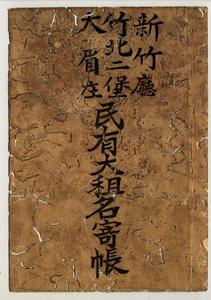 新竹廳
竹北二堡
大眉庄
民有大租名寄帳